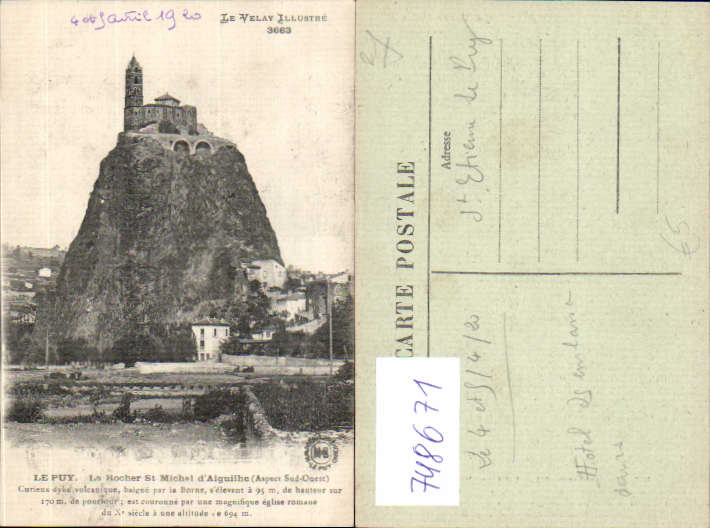 4 et 5 avril 1920
LE VELAY ILLUSTRÉ
3663
LE PUY. Le Rocher St Michel d'Aiguilhe (Aspect Sud-Ouest)
Curieux dyke volcanique, baigné par la Borne, s'élevant à 95 m. de hauteur sur
170 m. de pourtour ; est couronné par une magnifique église romane
du Xe siècle à une altitude de 694 m.
CARTE POSTALE
Adresse
St Etienne le Puy
65
Le 4 et 5/4/20
Hotel des
748671